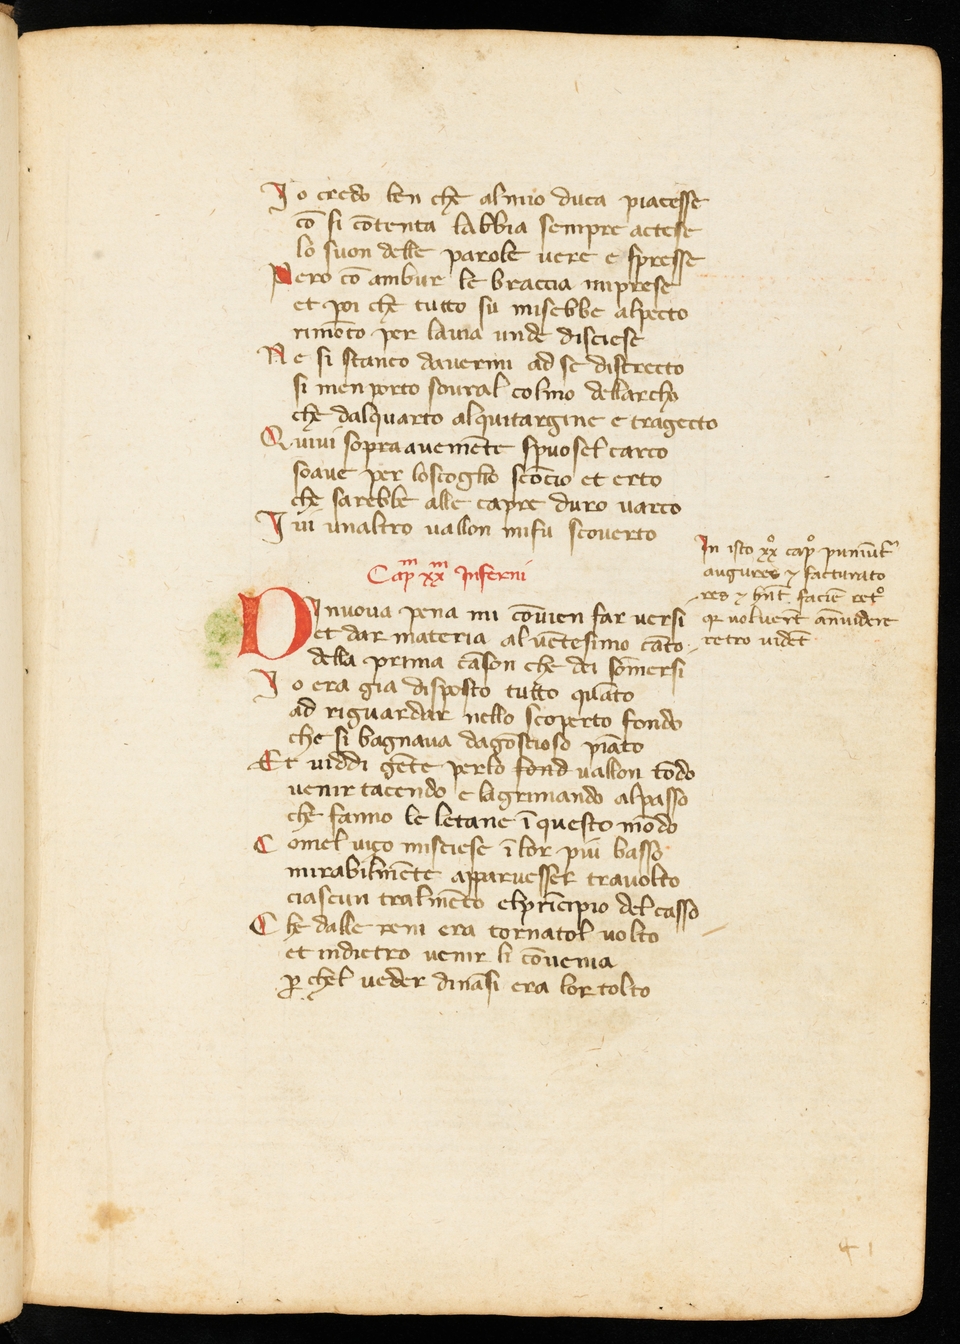 Io credo ben che al mio duca piacesse
cō si cōtenta labbia sempre actese
lo suon delle parole vere e spresse
Pero cō ambur le braccia mi prese
et poi che tutto su misebbe alpecto
rimōto per lauia unde disciese
Ne si stanco dauermi ad se distrecto
si men porto soural colmo dellarcho
che dalquarto alquitargine e tragecto
Quivi sopra auemēte spuosel carco
soaue per loscoglio scōcio et erto
che sarebbe alle capre duro varco
Ivi unaltro vallon mifu scoverto
Capm xxm Inferni
DI nuova pena mi cōvien far versi
et dar materia al vētesimo cāto
della prima cāson che dei sōmersi
Io era gia disposto tutto quāto
ad riguardar nello scoperto fondo
che si bagnaua dagōscioso piāto
Et viddi gēte perlo fond vallon tōdo
venir tacendo e lagrimando alpasso
che fanno le letane ī questo mōdo
Comel viço misciese ī lor piu basso
mirabilmēte apparuesser travolto
ciascun tralmēto elprīcipio del casso
Che dalle reni era tornatol volto
et indietro venir li cōvenia
p chel veder dināsi era lor tolto
In isto xxo capo puniūtr
augures & facturato
res & hnt faciē reto
qr voluert antvidere
retro vidēt
41